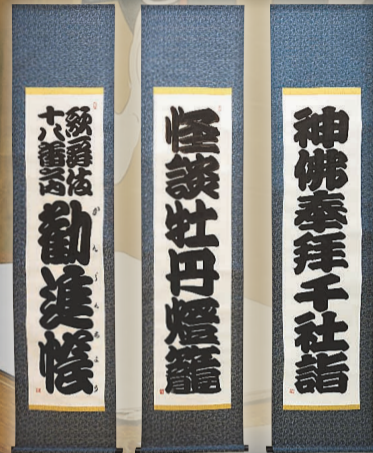 神佛奉拝千社詣
怪談牡丹燈籠
歌舞伎
十八番之内
勧進帳
かんじんちょう